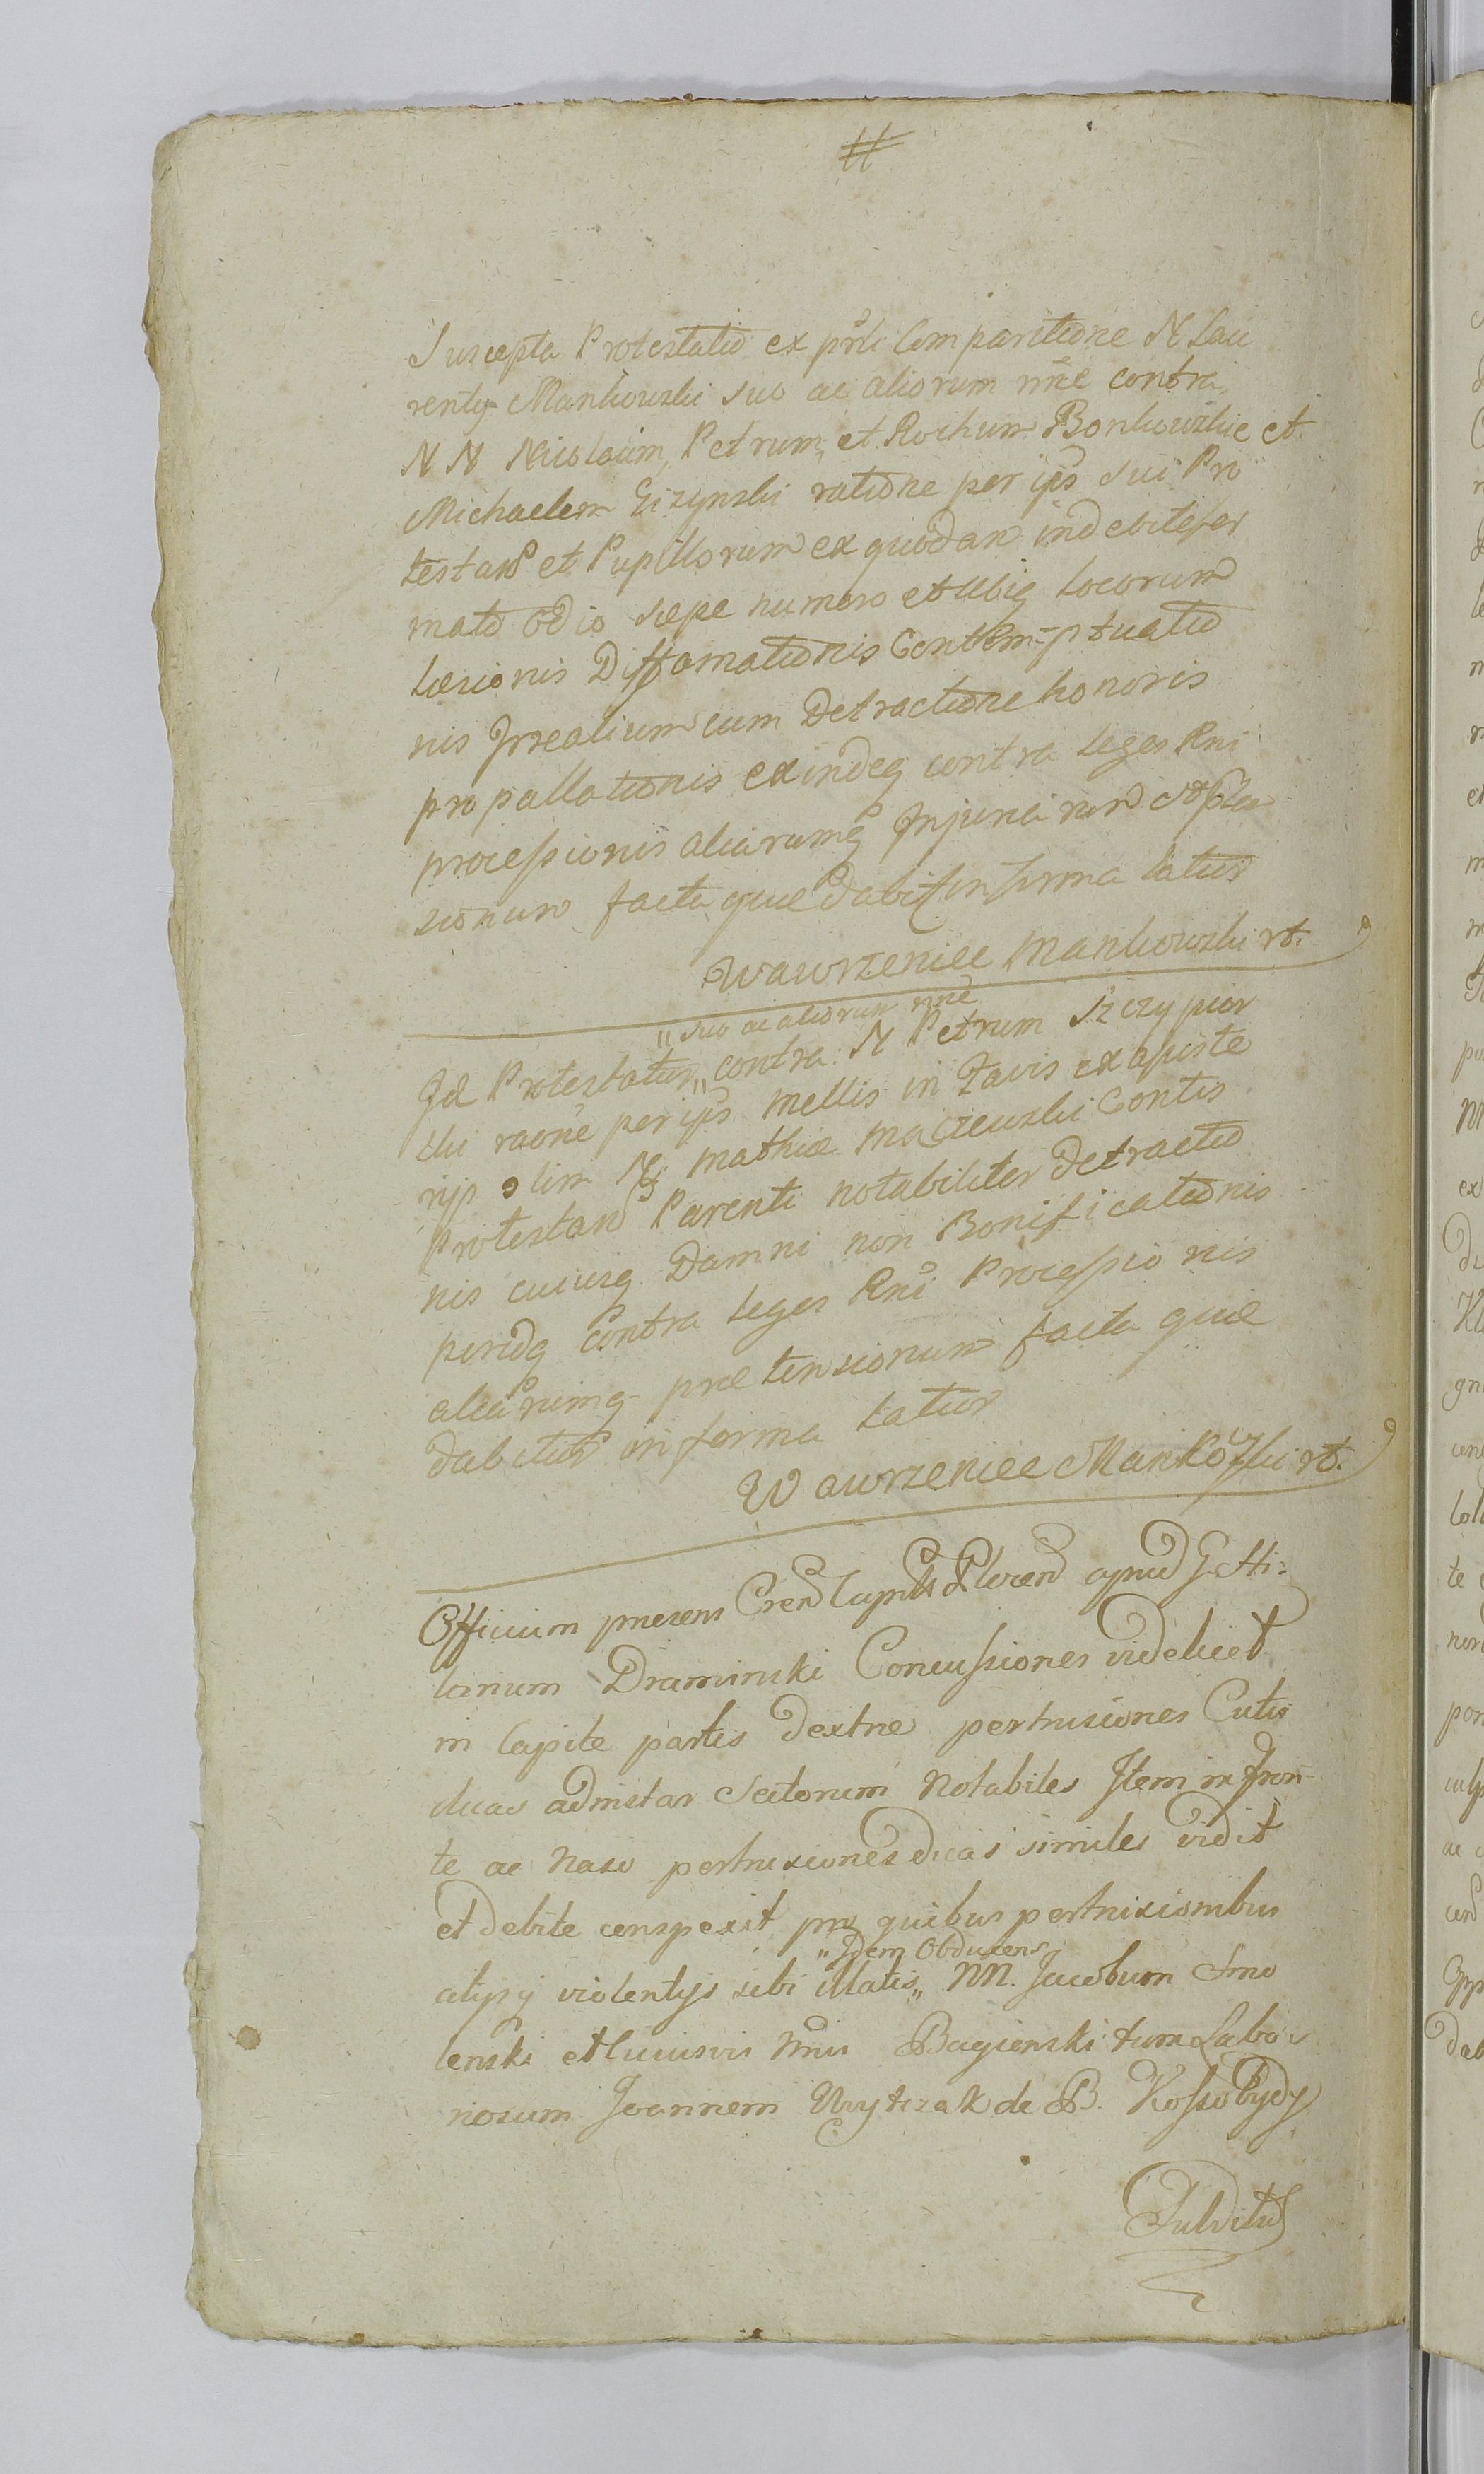 #
Suscepta Protestatio ex prli Comparitione N Lau
renty Mankowski suo ac aliorum nne contra
N N Nicolaum, Petrum, et Rochum Bonkowskie et
Michaelem Gizynski ratione per ips sui Pro
testan et Pupillorum ex quodam indebite for
mato odio sæpe numero et ubiq locorum
læsionis Diffamationis Contemptuatio
nis Irrealium cum Detractione honoris
propallationis exindeq contra leges Rni
processionis aliarumq Injuriarum
sionum facta quæ dabit in forma latior
Wawrzeniec Mankowski rt.
Id Protestatur „ suo ac aliorum nne „ contra N Petrum Szczypior
ski raone per ips mellis in Favis ex apiste
rijs olim N Mathiæ Maczewski Contis
Protestan Parenti notabiliter detractio
nis cuiusq Damni non Bonificationis
peridq Contra leges Rni Processionis
aliarumq prætensionum facta quæ
dabitur in forma latior
Wawrzeniec Mankowski rt.
Officium præsens Cren apud G. Hi-
larium Draminski Concussiones videlicet
in Capite partis dextræ pertrusiones Cutis
duas adinstar Sectorum Notabiles Item in fron-
te ac Naso pertrusiones duas similes vidit
et debite conspexit pro quibus pertrusionibus
alijsq violentijs sibi illatis „ Idem Obducens „ NN. Jacobum Smo
lenski et Cuiusvis Nnis Bagienski tum Labo-
riosum Joannem Wytrzak de B. Kossobydy